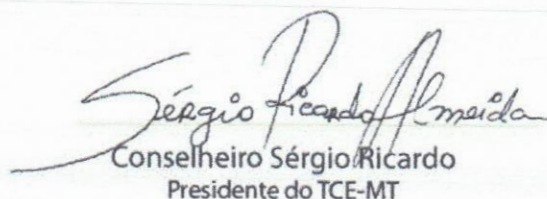 Sérgio Ricardo Almeida
Conselheiro Sérgio Ricardo
Presidente do TCE-MT